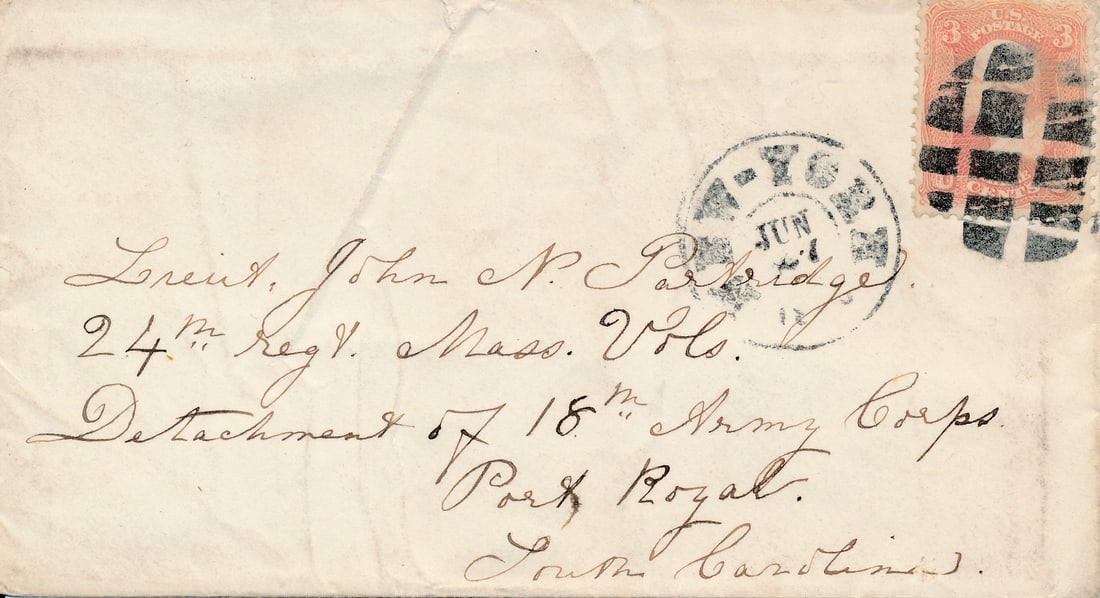 3 U.S. POSTAGE 3
U CENTS
NEW-YORK
JUN
27
Lieut. John N. Partridge.
24th regt. Mass. Vols.
Detachment of 18th Army Corps.
Port Royal.
South Carolina.